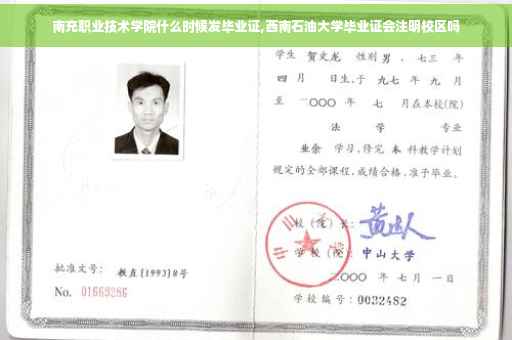 南充职业技术学院什么时候发毕业证,西南石油大学毕业证会注明校区吗
学生 贺文龙 性别 男 、七三 年
四 月 日生，于 九七 年 九 月
至 二〇〇〇 年 七 月在本校(院)
法 学 专业
业余 学习，修完 本 科教学计划
规定的全部课程，成绩合格，准予毕业。
校（院）长：
学 校（院）：中山大学
二〇〇〇 年 七 月 一 日
学校编号：0032482
批准文号： 教直[1993]8号
No. 01669286